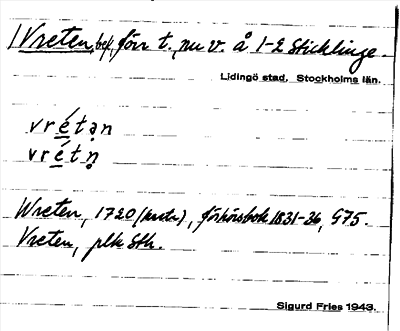 Vreten, bef. förr t., nu v. å 1-2 Sticklinge.
Lidingö stad, Stockholms län.
vrétạn
vrétṇ
Wreten, 1720 (karta), förhörsbok 1831-36, G75.
Vreten, plk Sth.
Sigurd Fries 1943.